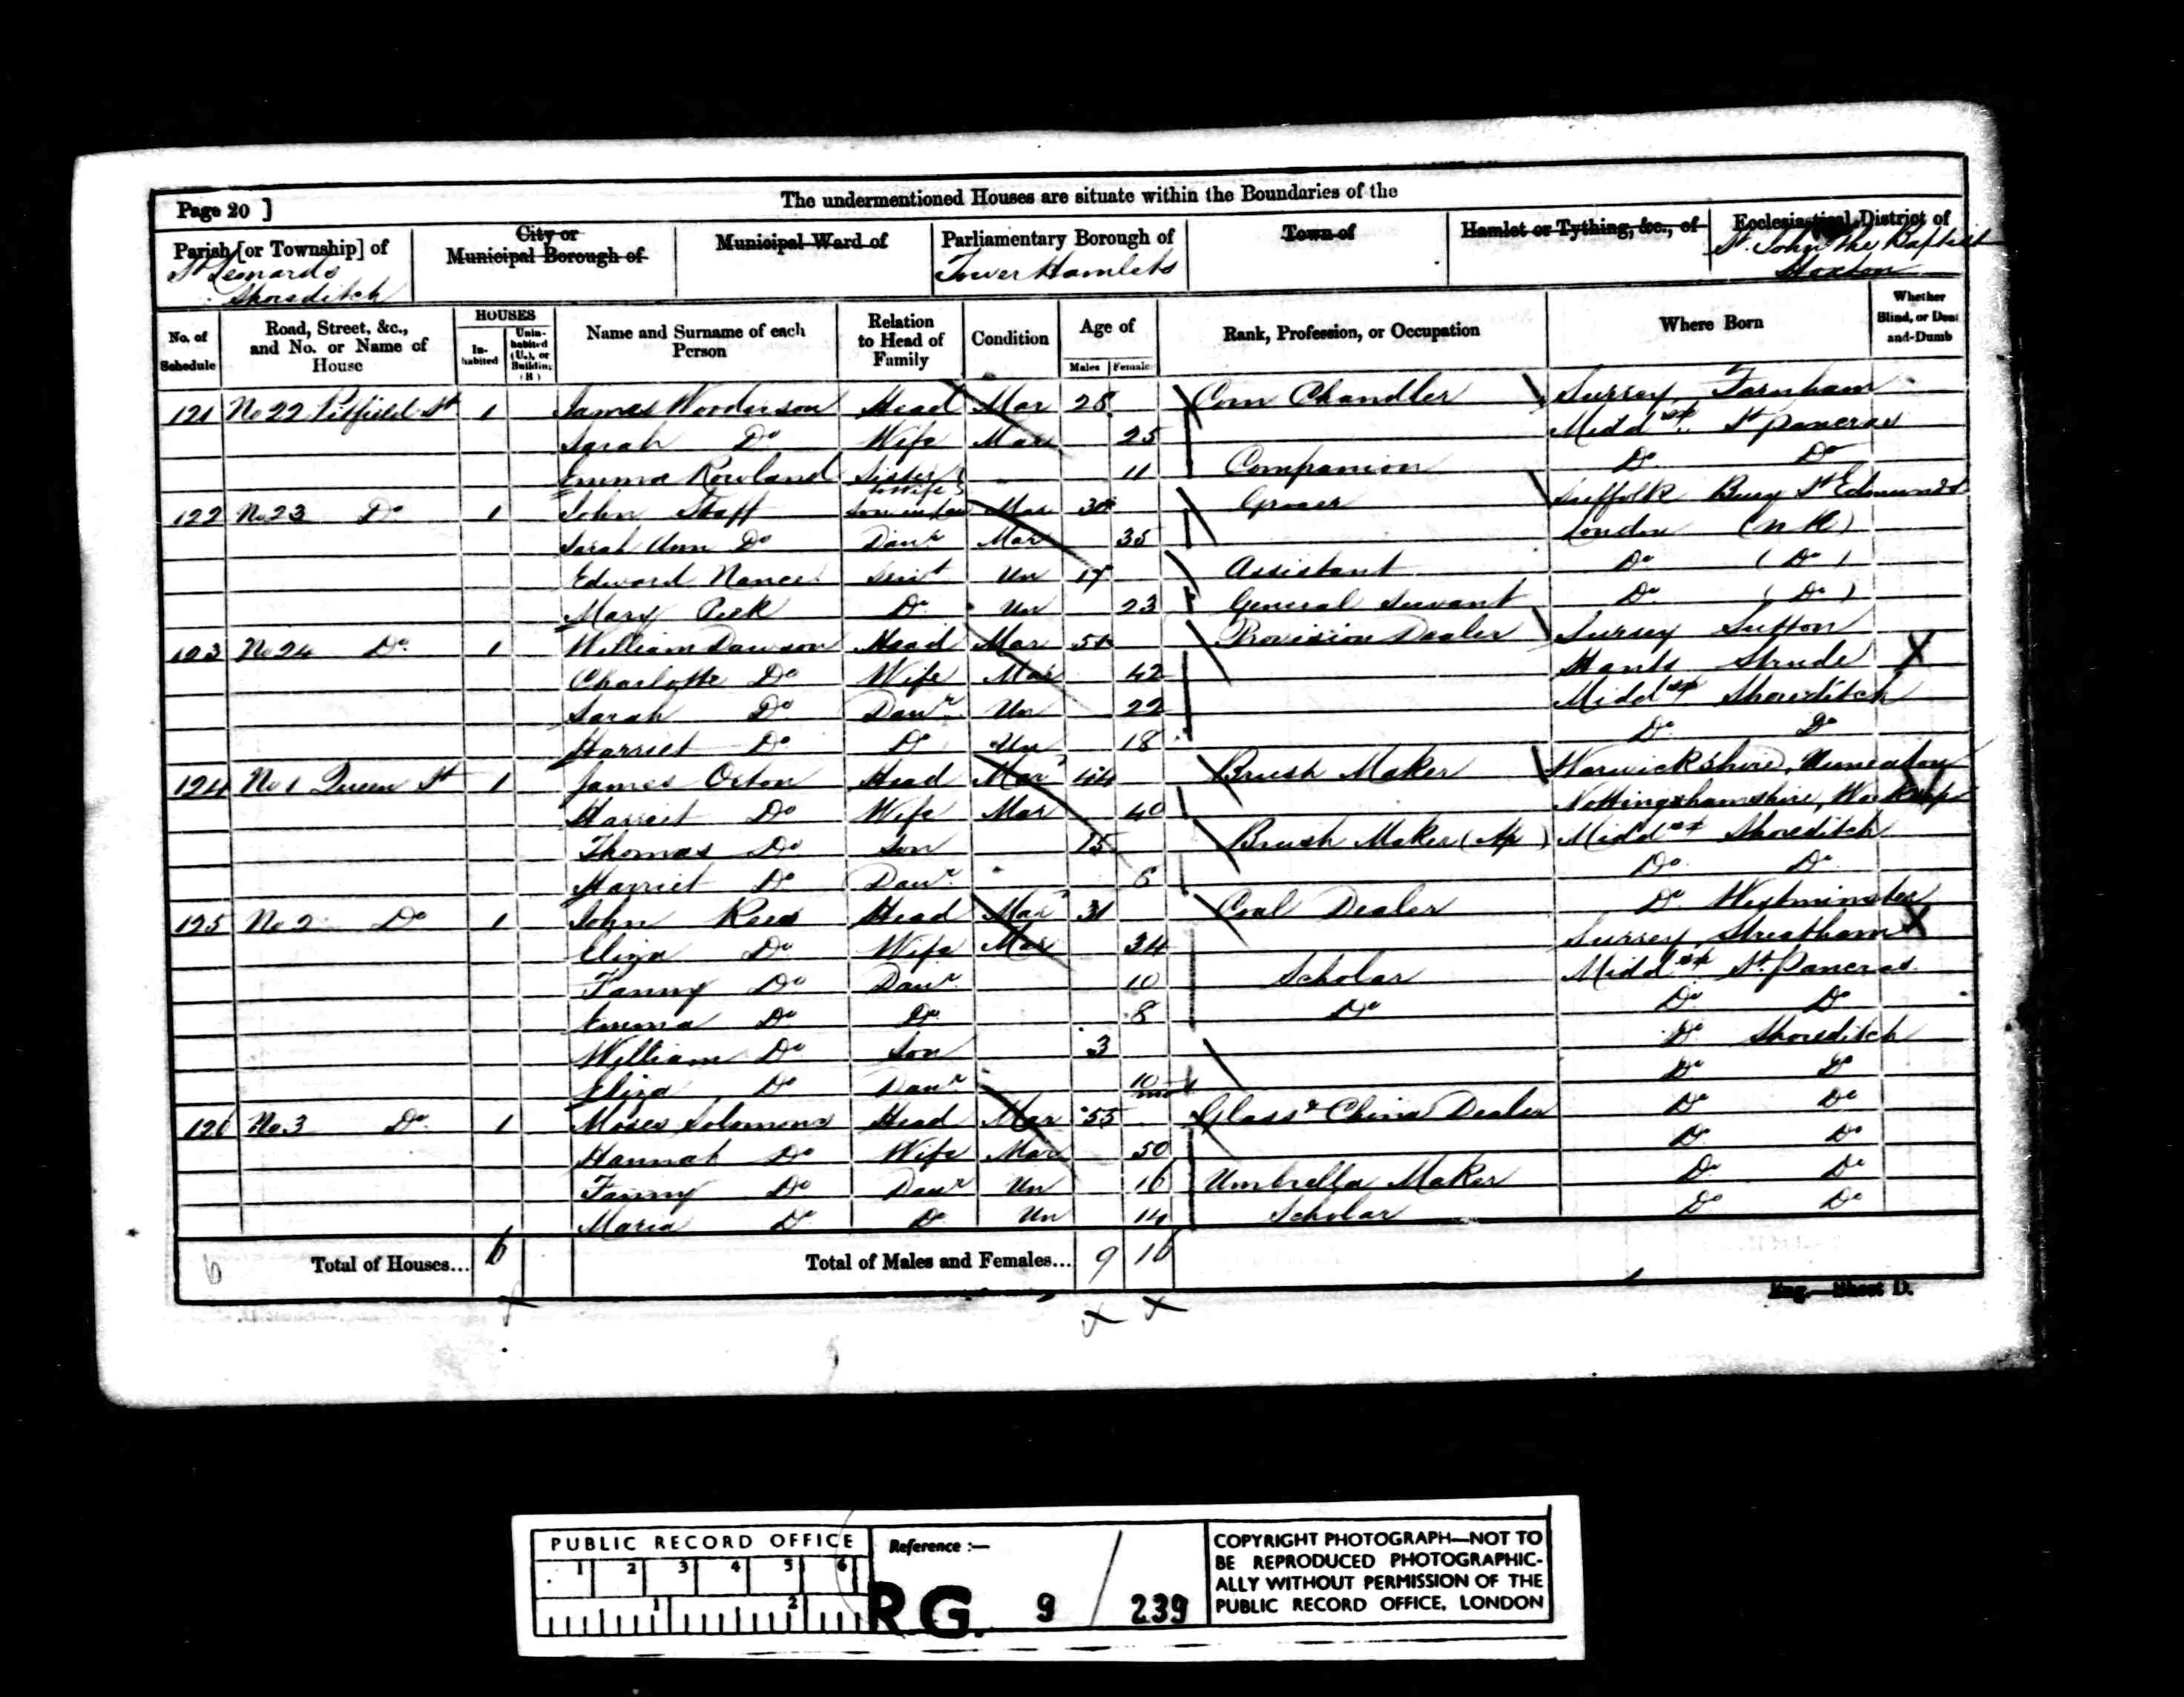 Page 20 ]
The undermentioned Houses are situate within the Boundaries of the
Parish [or Township] of
St Leonards
Shoreditch
City or
Municipal Borough of
Municipal Ward of
Parliamentary Borough of
Tower Hamlets
Town of
Hamlet or Tything, &c., of
Ecclesiastical District of
St. John the Baptist
Hoxton
No. of Schedule
Road, Street, &c., and No. or Name of House
HOUSES
In-habited
Unin-habited (U.), or Building (B)
Name and Surname of each Person
Relation to Head of Family
Condition
Age of
Males Females
Rank, Profession, or Occupation
Where Born
Whether Blind, or Deaf-and-Dumb
121 No 22 Pitfield St 1 James Wooderson Head Mar 28 Corn Chandler Surrey Farnham
Sarah Do Wife Mar 25 Middsx St Pancras
Emma Rowland Sister (to Wife) 11 Companion Do Do
122 No 23 Do 1 John Staff Son in law Mar 30 Grocer Suffolk Bury St Edmunds
Sarah Ann Do Daur Mar 35 London (N K)
Edward Nance Servt Un 17 Assistant Do (Do)
Mary Peek Do Un 23 General Servant Do (Do)
123 No 24 Do 1 William Dawson Head Mar 51 Provision Dealer Surrey Sutton
Charlotte Do Wife Mar 42 Hants
Sarah Do Daur Un 22 Middsx Shoreditch
Harriet Do Do Un 18 Do Do
124 No 1 Queen St 1 James Orton Head Mar 44 Brush Maker Warwickshire, Nuneaton
Harriet Do Wife Mar 40 Nottinghamshire, Worksop
Thomas Do Son 15 Brush Maker (Ap) Middsx Shoreditch
Harriet Do Daur 6 Do Do
125 No 2 Do 1 John Rees Head Mar 31 Coal Dealer Do Westminster
Eliza Do Wife Mar 34 Surrey Streatham
Fanny Do Daur 10 Scholar Middsx St. Pancras
Emma Do Do 8 Do Do Do
William Do Son 3 Do Shoreditch
Eliza Do Daur 10 mo Do Do
126 No 3 Do 1 Moses Solomons Head Mar 55 Glass & China Dealer Do Do
Hannah Do Wife Mar 50 Do Do
Fanny Do Daur Un 16 Umbrella Maker Do Do
Maria Do Do Un 14 Scholar Do Do
6 Total of Houses... 6 Total of Males and Females... 9 16
Eng.—Sheet D.
PUBLIC RECORD OFFICE
1 2 3 4 5 6
1 2
Reference :—
R.G. 9 / 239
COPYRIGHT PHOTOGRAPH—NOT TO
BE REPRODUCED PHOTOGRAPHIC-
ALLY WITHOUT PERMISSION OF THE
PUBLIC RECORD OFFICE, LONDON